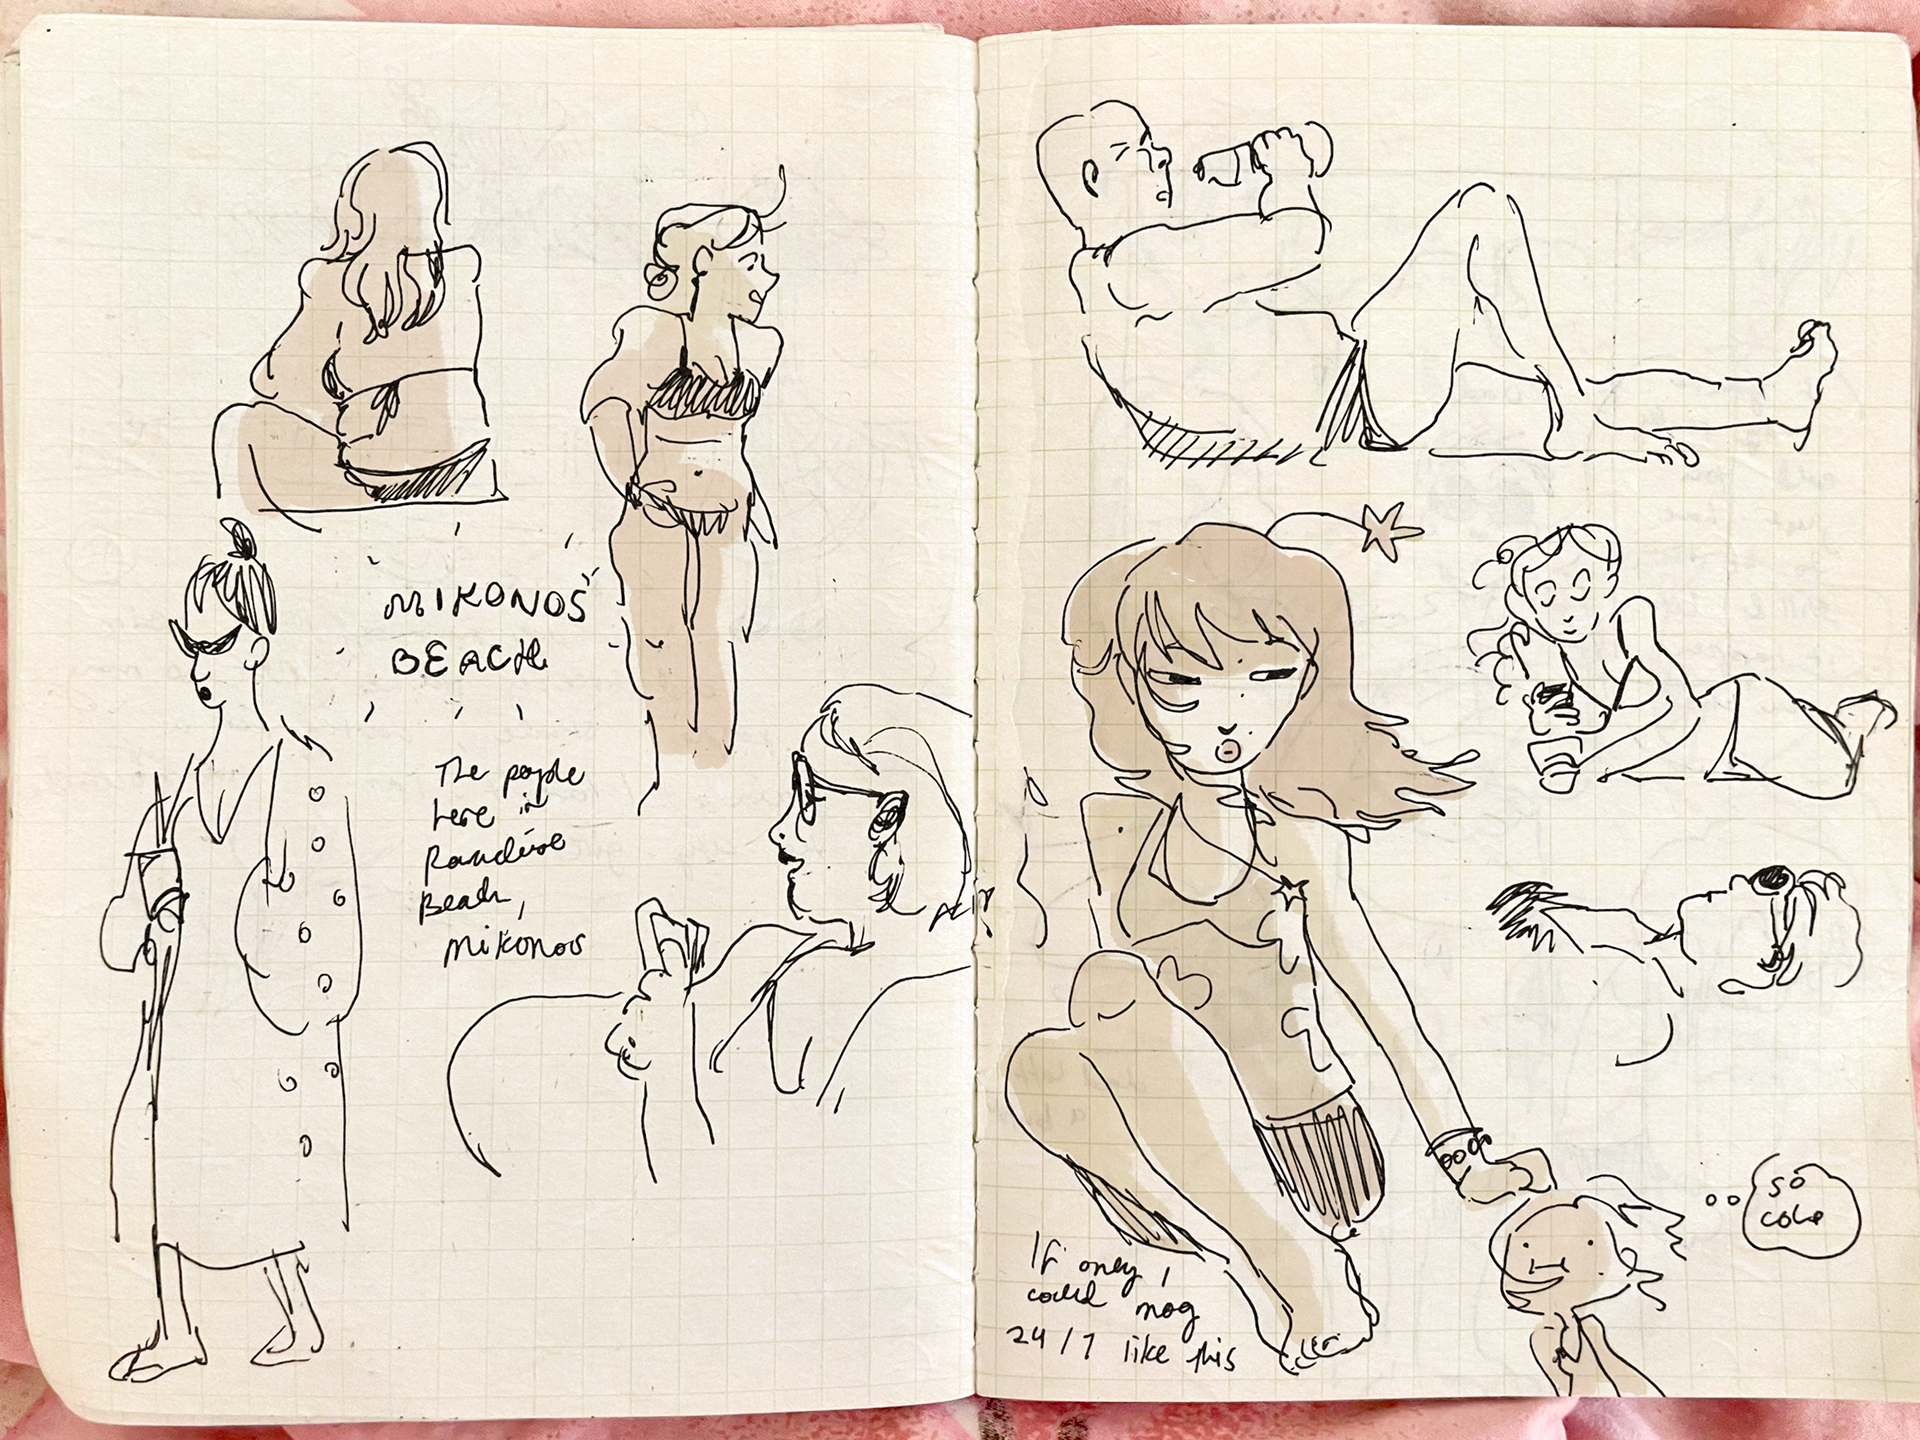 MIKONOS
BEACH
The people
here in
Beach,
Mikonos
If only I
could mog
24/7 like this
so